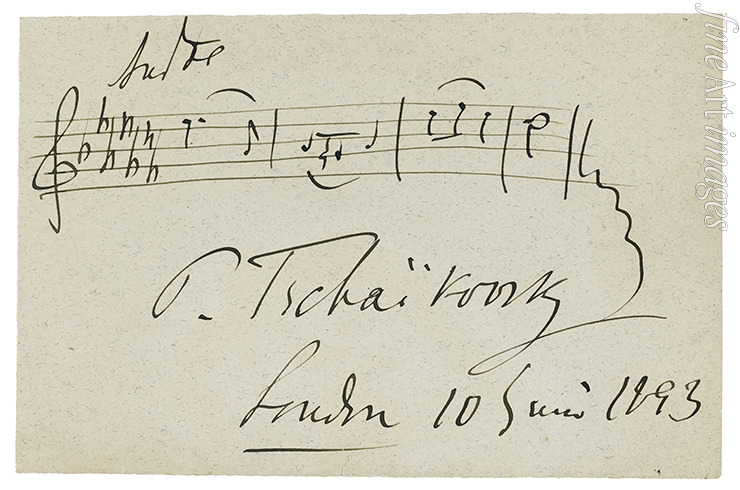 Andte
P. Tschaïkovsky
London 10 Juin 1893
fine Art images